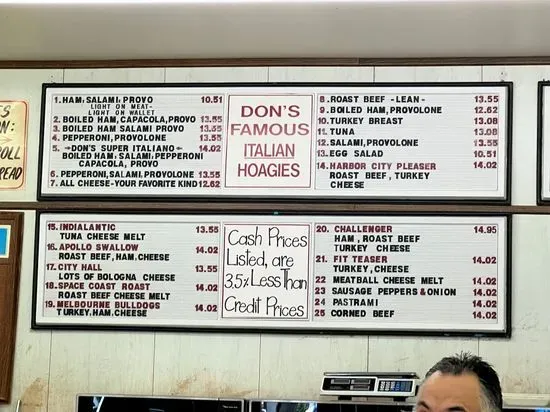 1. HAM, SALAMI, PROVO 10.51
LIGHT ON MEAT-
LIGHT ON WALLET
2. BOILED HAM, CAPACOLA, PROVO 13.55
3. BOILED HAM SALAMI PROVO 13.55
4. PEPPERONI, PROVOLONE 13.55
5. DON'S SUPER ITALIANO 14.02
BOILED HAM, SALAMI, PEPPERONI
CAPACOLA, PROVO
6. PEPPERONI, SALAMI, PROVOLONE 13.55
7. ALL CHEESE-YOUR FAVORITE KIND 12.62
DON'S
FAMOUS
ITALIAN
HOAGIES
8. ROAST BEEF -LEAN- 13.55
9. BOILED HAM, PROVOLONE 12.62
10. TURKEY BREAST 13.08
11. TUNA 13.08
12. SALAMI, PROVOLONE 13.55
13. EGG SALAD 10.51
14. HARBOR CITY PLEASER 14.02
ROAST BEEF, TURKEY
CHEESE
15. INDIALANTIC 13.55
TUNA CHEESE MELT
16. APOLLO SWALLOW 14.02
ROAST BEEF, HAM, CHEESE
17. CITY HALL 13.55
LOTS OF BOLOGNA CHEESE
18. SPACE COAST ROAST 14.02
ROAST BEEF CHEESE MELT
19. MELBOURNE BULLDOGS 14.02
TURKEY, HAM, CHEESE
Cash Prices
Listed, are
3.5% Less Than
Credit Prices
20. CHALLENGER 14.95
HAM, ROAST BEEF
TURKEY CHEESE
21. FIT TEASER 14.02
TURKEY, CHEESE
22 MEATBALL CHEESE MELT 14.02
23 SAUSAGE PEPPERS & ONION 14.02
24 PASTRAMI 14.02
25 CORNED BEEF 14.02